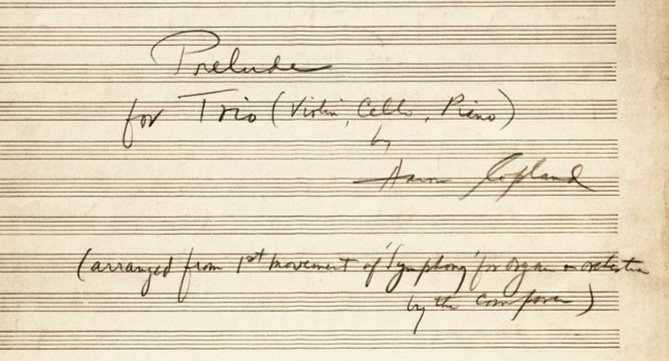 Prelude
for Trio (Violin, Cello, Piano)
by
Aaron Copland
(arranged from 1st movement of 'Symphony' for organ & orchestra
by the composer)